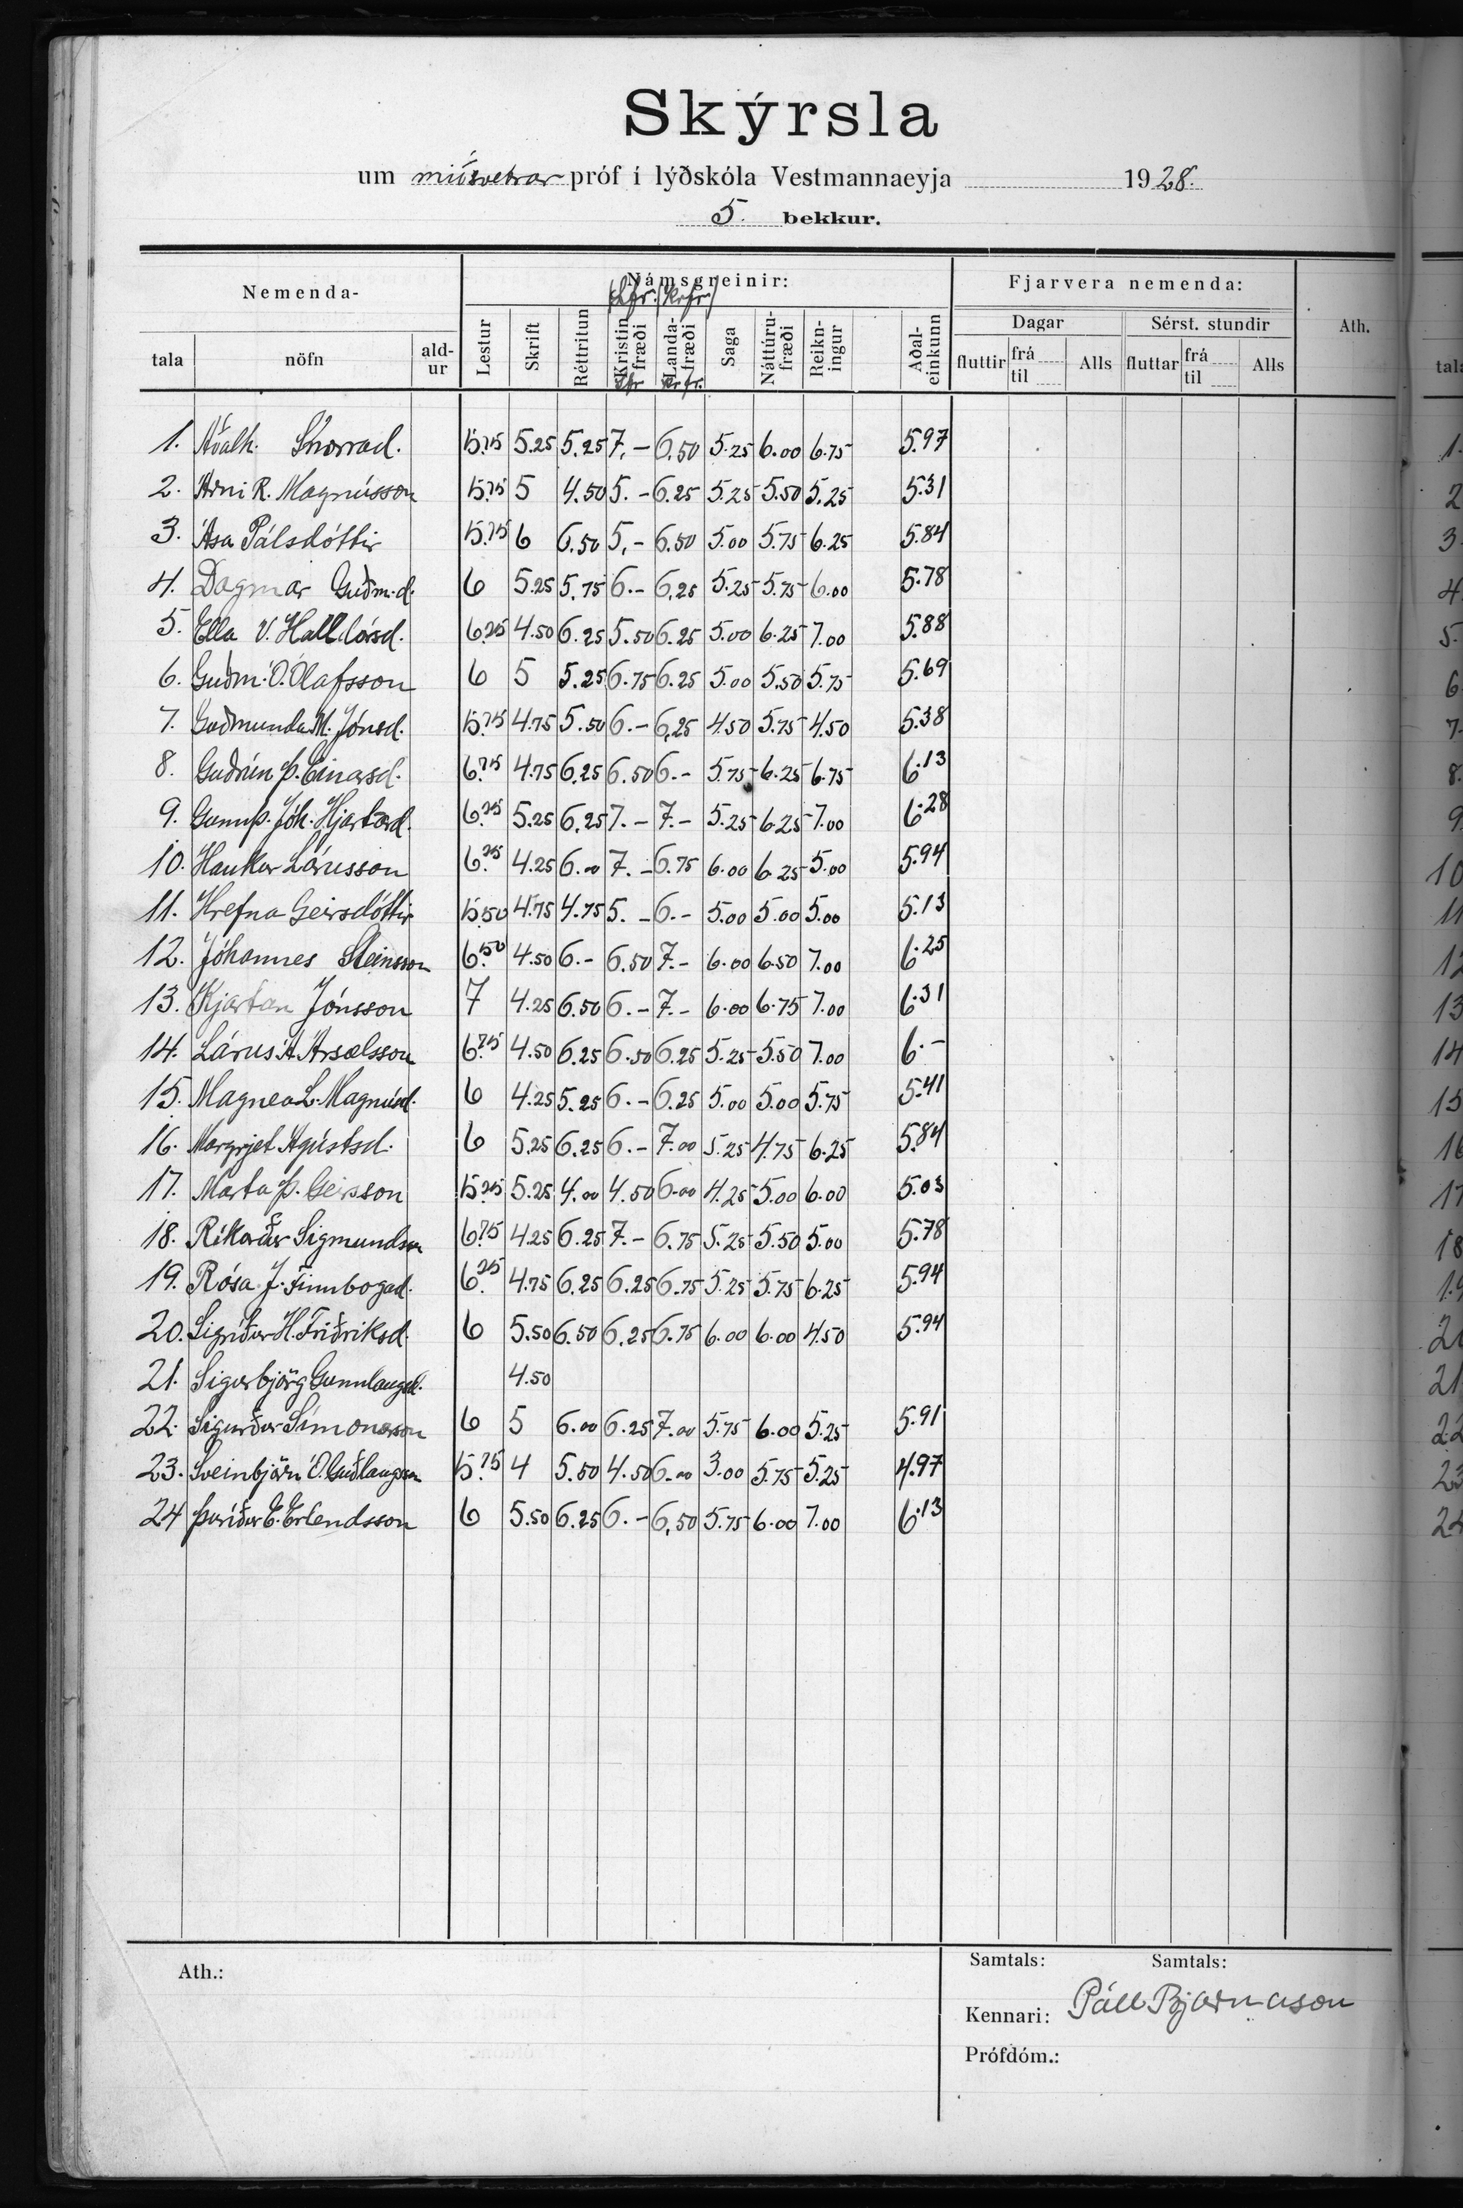 Skýrsla
um miðsvetrar próf í lýðskóla Vestmannaeyja 1928.
5. bekkur.
Nemenda- Námsgreinir: Fjarvera nemenda: Ath.
tala nöfn ald-ur Lestur Skrift Réttritun Kristin fræði Landa-fræði Saga Náttúru-fræði Reikn-ingur Aðal-einkunn Dagar Sérst. stundir
fluttir frá til Alls fluttar frá til Alls
1. Snorrad. 5.75 5.25 5.25 7.- 6.50 5.25 6.00 6.75 5.97
2. Árni R. Magnússon 5.75 5 4.50 5.- 6.25 5.25 5.50 5.25 5.31
3. Ása Pálsdóttir 5.75 6 6.50 5,- 6.50 5.00 5.75 6.25 5.84
4. Dagmar Guðm.d. 6 5.25 5.75 6.- 6,25 5.25 5.75 6.00 5.78
5. Ella V. Halldórsd. 6.25 4.50 6.25 5.50 6.25 5.00 6.25 7.00 5.88
6. Guðm. Ó. Ólafsson 6 5 5.25 6.75 6.25 5.00 5.50 5.75 5.69
7. Guðmunda M. Jónsd. 5.75 4.75 5.50 6.- 6,25 4.50 5.75 4.50 5.38
8. Guðrún Þ. Einarsd. 6.75 4.75 6.25 6.50 6.- 5.75 6.25 6.75 6.13
9. Gunnþ. Jóh. Hjartard. 6.25 5.25 6.25 7.- 7.- 5.25 6.25 7.00 6.28
10. Haukur Lárusson 6.25 4.25 6.00 7.- 6.75 6.00 6.25 5.00 5.94
11. Hrefna Geirsdóttir 5.50 4.75 4.75 5.- 6.- 5.00 5.00 5.00 5.13
12. Jóhannes Steinsson 6.50 4.50 6.- 6.50 7.- 6.00 6.50 7.00 6.25
13. Kjartan Jónsson 7 4.25 6.50 6.- 7.- 6.00 6.75 7.00 6.31
14. Lárus Á Ársælsson 6.75 4.50 6.25 6.50 6.25 5.25 5.50 7.00 6.-
15. Magnea L. Magnúsd. 6 4.25 5.25 6.- 6.25 5.00 5.00 5.75 5.41
16. Margrjet Ágústsd. 6 5.25 6.25 6.- 7.00 5.25 4.75 6.25 5.84
17. Marta Þ. Geirsson 5.25 5.25 4.00 4.50 6.00 4.25 5.00 6.00 5.03
18. Ríkarður Sigmundsson 6.75 4.25 6.25 7.- 6.75 5.25 5.50 5.00 5.78
19. Rósa J. Finnbogad. 6.25 4.75 6.25 6.25 6.75 5.25 5.75 6.25 5.94
20. Sigríður H. Friðriksd. 6 5.50 6.50 6.25 6.75 6.00 6.00 4.50 5.94
21. Sigurbjörg Gunnlaugsd. 4.50
22. Sigurður Símonarson 6 5 6.00 6.25 7.00 5.75 6.00 5.25 5.91
23. Sveinbjörn Ó. Guðlaugsson 5.75 4 5.50 4.50 6.00 3.00 5.75 5.25 4.97
24 Þuríður E. Erlendsson 6 5.50 6.25 6.- 6,50 5.75 6.00 7.00 6.13
Ath.:
Samtals: Samtals:
Kennari: Páll Bjarnason
Prófdóm.: